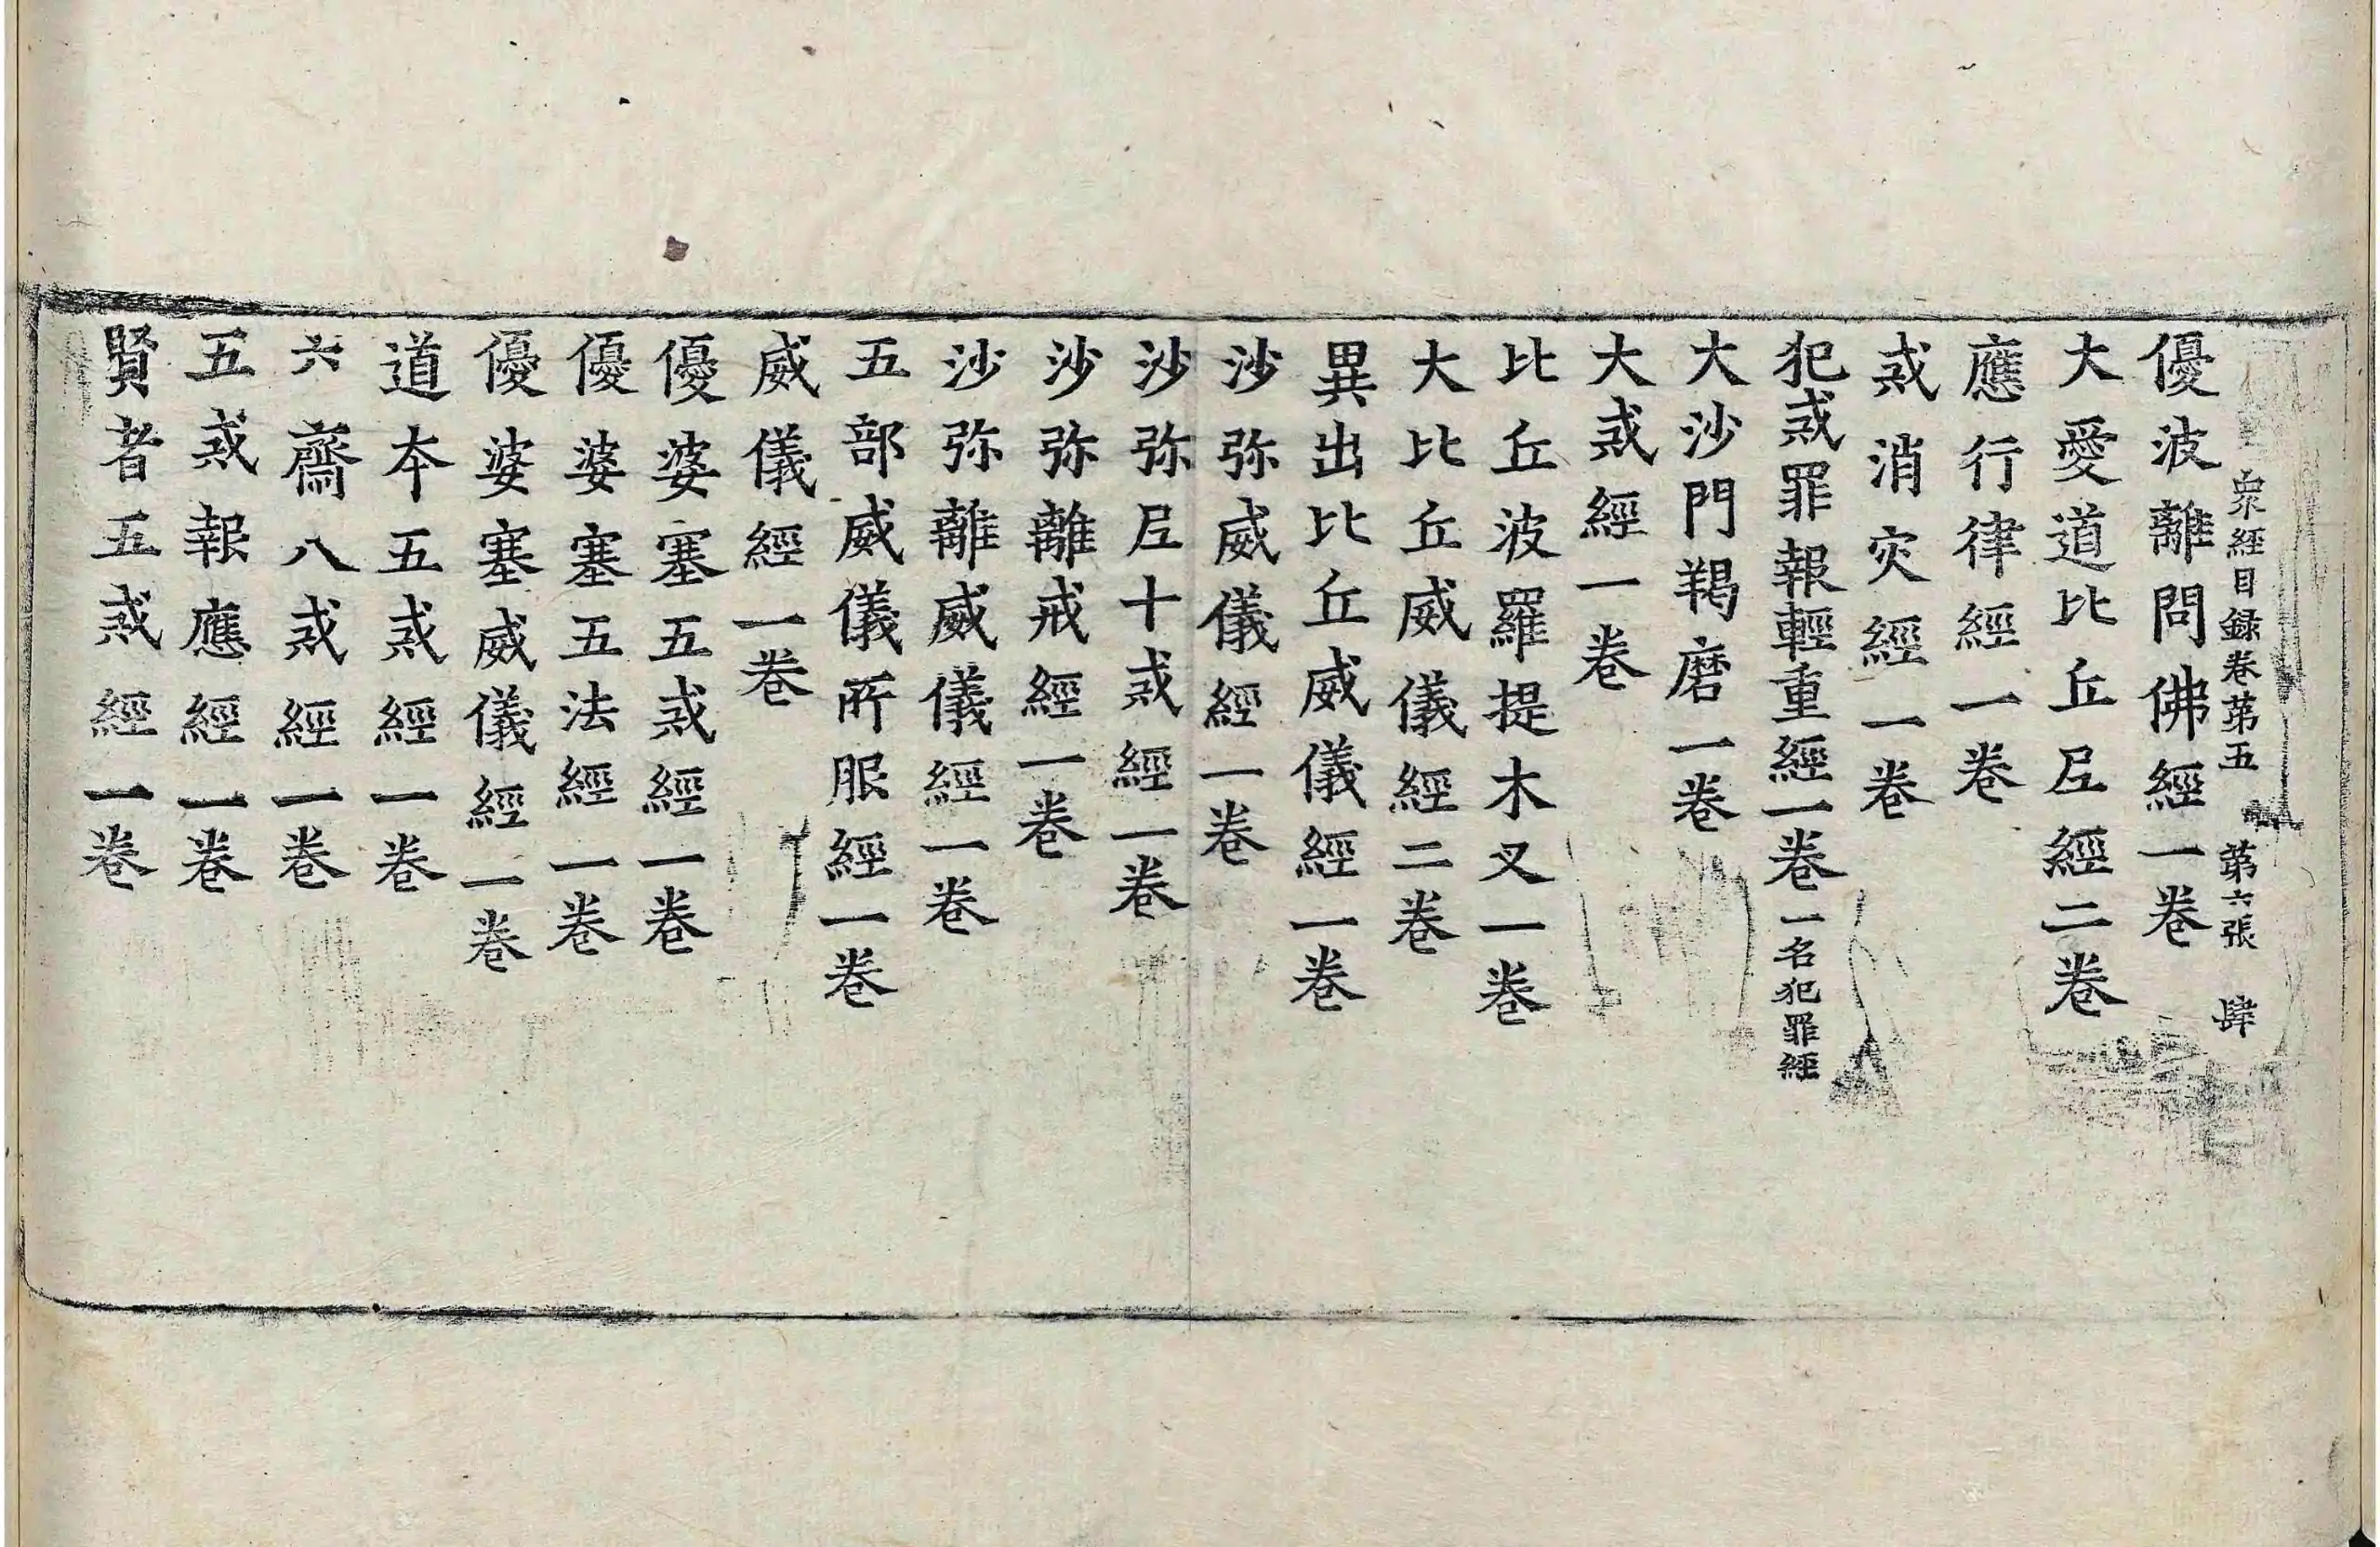 衆經目録卷苐五 苐六張 肆
優波離問佛經一卷
大愛道比丘尼經二卷
應行律經一卷
戒消灾經一卷
犯戒罪報輕重經一卷一名犯罪經
大沙門羯磨一卷
大戒經一卷
比丘波羅提木叉一卷
大比丘威儀經二卷
異出比丘威儀經一卷
沙弥威儀經一卷
沙弥尼十戒經一卷
沙弥離戒經一卷
沙弥離威儀經一卷
五部威儀所服經一卷
威儀經一卷
優婆塞五戒經一卷
優婆塞五法經一卷
優婆塞威儀經一卷
道本五戒經一卷
六齋八戒經一卷
五戒報應經一卷
賢者五戒經一卷